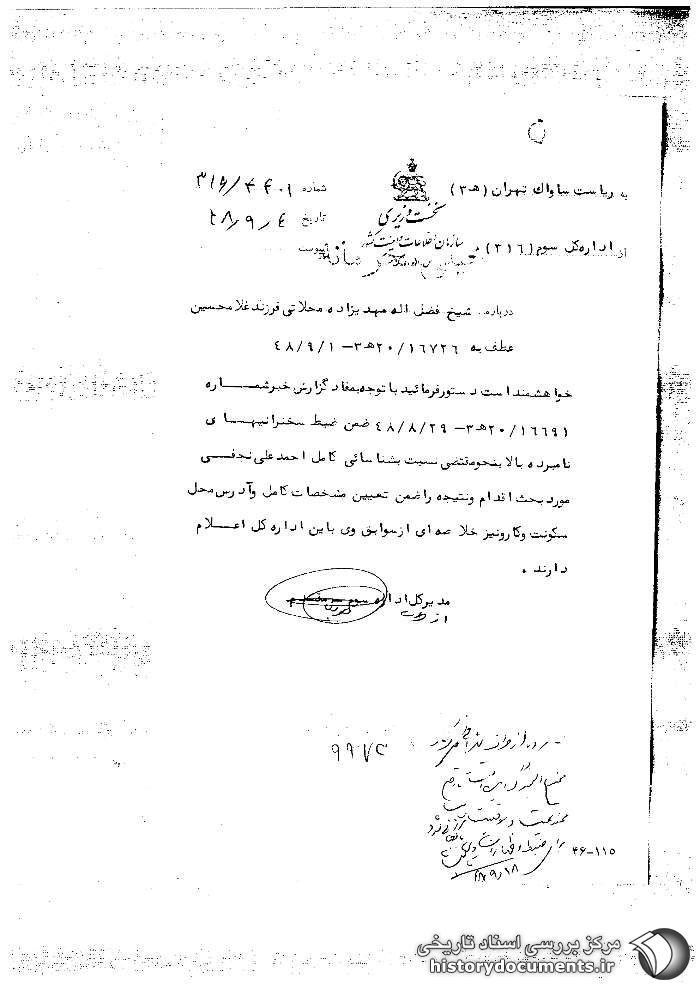 به ریاست ساواک تهران (ه۳)
شماره ۳۱۶/۴۴۰۱
نخست وزیری
تاریخ ۴۸/۹/۴
سازمان اطلاعات و امنیت کشور
از اداره کل سوم (۳۱۶)
پیوست
درباره شیخ فضل اله مهدیزاده محلاتی فرزند غلامحسین
عطف به ۲۰/۱۶۷۲۶ه۳-۴۸/۹/۱
خواهشمند است دستور فرمائید با توجه بمفاد گزارش خبر شماره
۲۰/۱۶۶۹۱ه۳-۴۸/۸/۲۹ ضمن ضبط سخنرانیهای
نامبرده بالا بنحو مقتضی نسبت بشناسائی کامل احمد علی نجفی
مورد بحث اقدام و نتیجه را ضمن تعیین مشخصات کامل و آدرس محل
سکونت و کار و نیز خلاصه ای از سوابق وی باین اداره کل اعلام
دارند.
مدیر کل اداره سوم مقدم
از طرف
۹۹۷۳
۴۶-۱۱۵
۴۸/۹/۱۸
مرکز بررسی اسناد تاریخی
historydocuments.ir